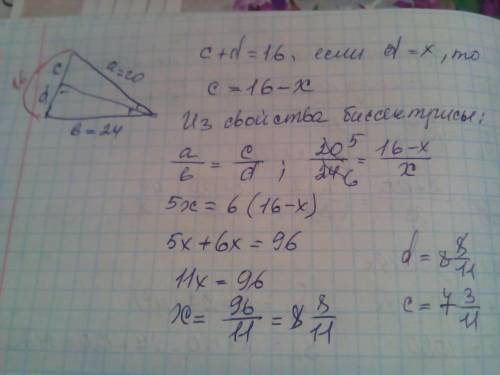 16
c
d
a=20
в=24
c+d=16, если d=x, то
c=16-x
Из свойства биссектрисы:
a/в = c/d ; 20/24 5/6 = 16-x/x
5x=6(16-x)
5x+6x=96
11x=96
x= 96/11 = 8 8/11
d= 8 8/11
c= 7 3/11